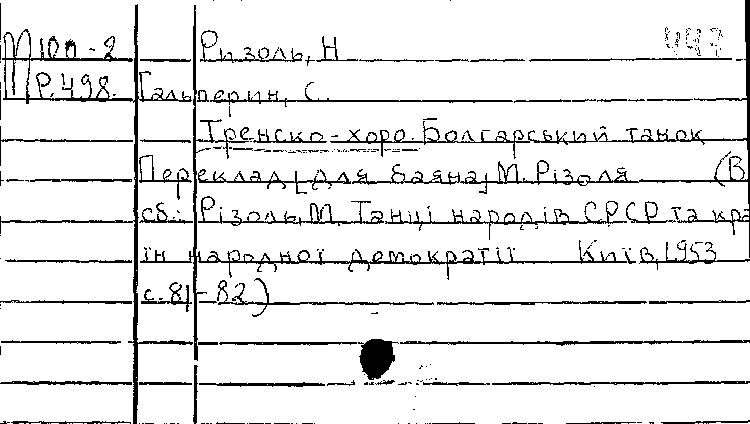 М10п-2 Ризоль, Н 447
Р.498. Гальперин, С.
Тренско-хоро. Болгарський танок
Переклад [для баяна] М. Різоля (В
сб.: Різоль, М. Танці народів СРСР та кра
їн народної демократії Київ, 1953
с. 81-82)